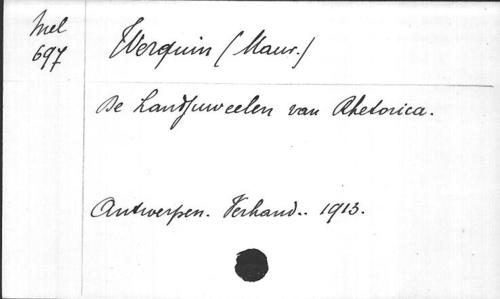 Mel
697
Werquin (Maur.)
De Landjuweelen van Rhetorica.
Antwerpen. Verhand.. 1913.